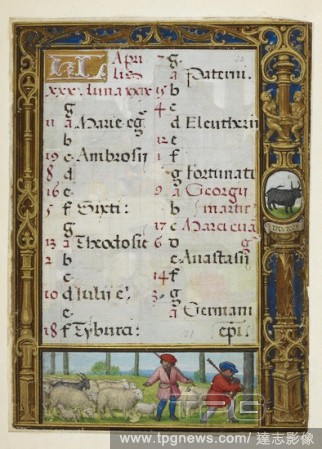 KL Apri
lis
xxx. luna xxix
g
11 a Marie eg
b
19 c Ambrosii
8 d
16 e
5 f Sixti:
g
13 a Theodosie
2 b
c
10 d Iulii e.
e
18 f Tyburci:
7 g
a Paterni.
15 b
4 c
d Eleutherii
12 e
1 f
g Fortunati
9 a Georgii
b martir
17 c Marci euã
6 d g
e Anastasii
14 f
3 g
a Germani
epi.
TPG
www.tpgnews.com/ 達志影像